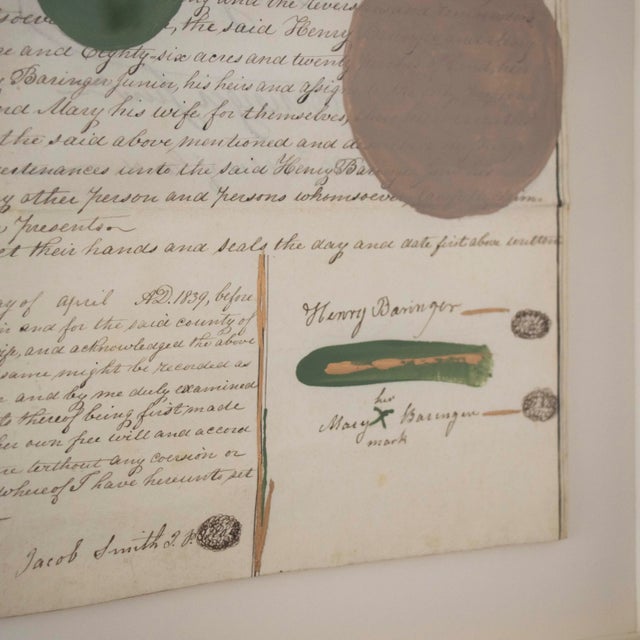 and the reversions and remainders
the said Henry
and Eighty-six acres and twenty
Baringer Junior, his heirs and assig
nd Mary his wife for themselves,
the said above, mentioned and
urtenances unto the said Henry Baringer
y other person and persons whomsoever
Presents
et their hands and seals the day and date first above written
ay of april A.D. 1839, before
and for the said county of
ife, and acknowledged the above
same might be recorded as
and by me duly examined
thereof being first made
her own free will and accord
without any coersion or
whereof I have hereunto set
Jacob Smith J. P.
Henry Baringer
her
Mary X Baringer
mark